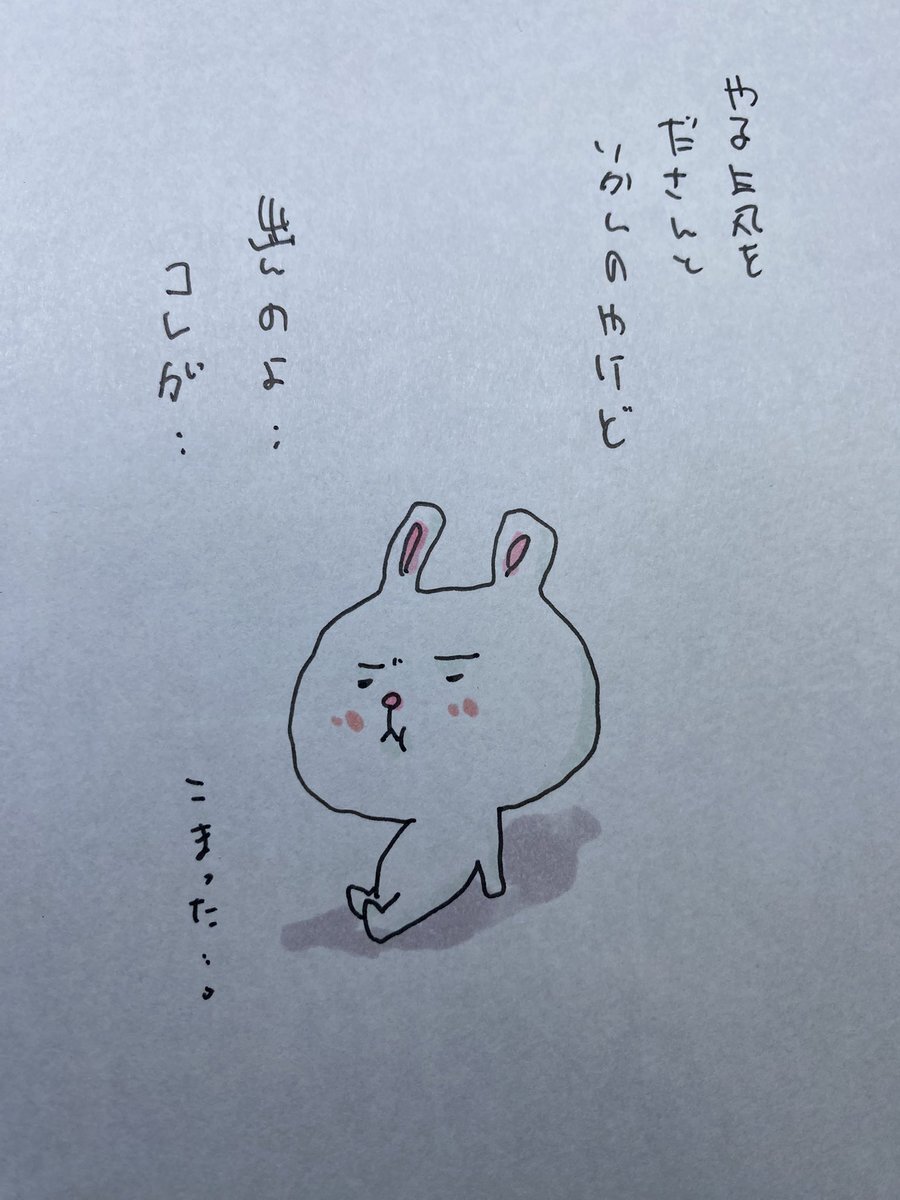 やる気を
ださんと
いかんのやけど
出んのよ‥
コレが‥
こまった‥。